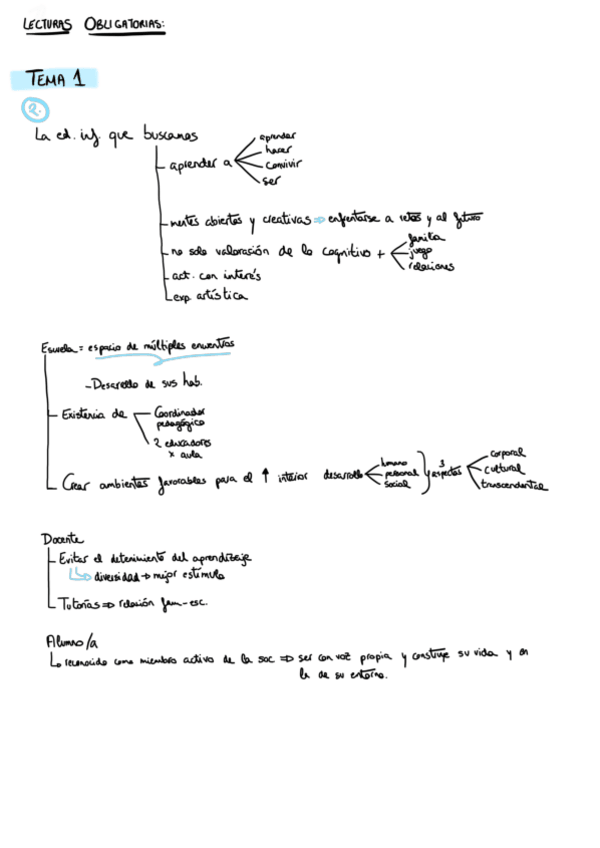 LECTURAS OBLIGATORIAS:
TEMA 1
2.
La ed. inf. que buscamos
aprender a
aprender
hacer
convivir
ser
mentes abiertas y creativas => enfrentarse a retos y al futuro
no solo valoración de lo cognitivo +
familia
juego
relaciones
act. con interés
exp. artística
Escuela = espacio de múltiples encuentros
- Desarrollo de sus hab.
Existencia de
Coordinador
pedagógico
2 educadores
x aula
Crear ambientes favorables para el ↑ interior desarrollo
humano
personal
social
y 3 aspectos
corporal
cultural
trascendental
Docente
Evitar el detenimiento del aprendizaje
↳ diversidad → mejor estímulo
Tutorías => relación fam-esc.
Alumno/a
↳ reconocido como miembro activo de la soc => ser con voz propia y construye su vida y en
la de su entorno.